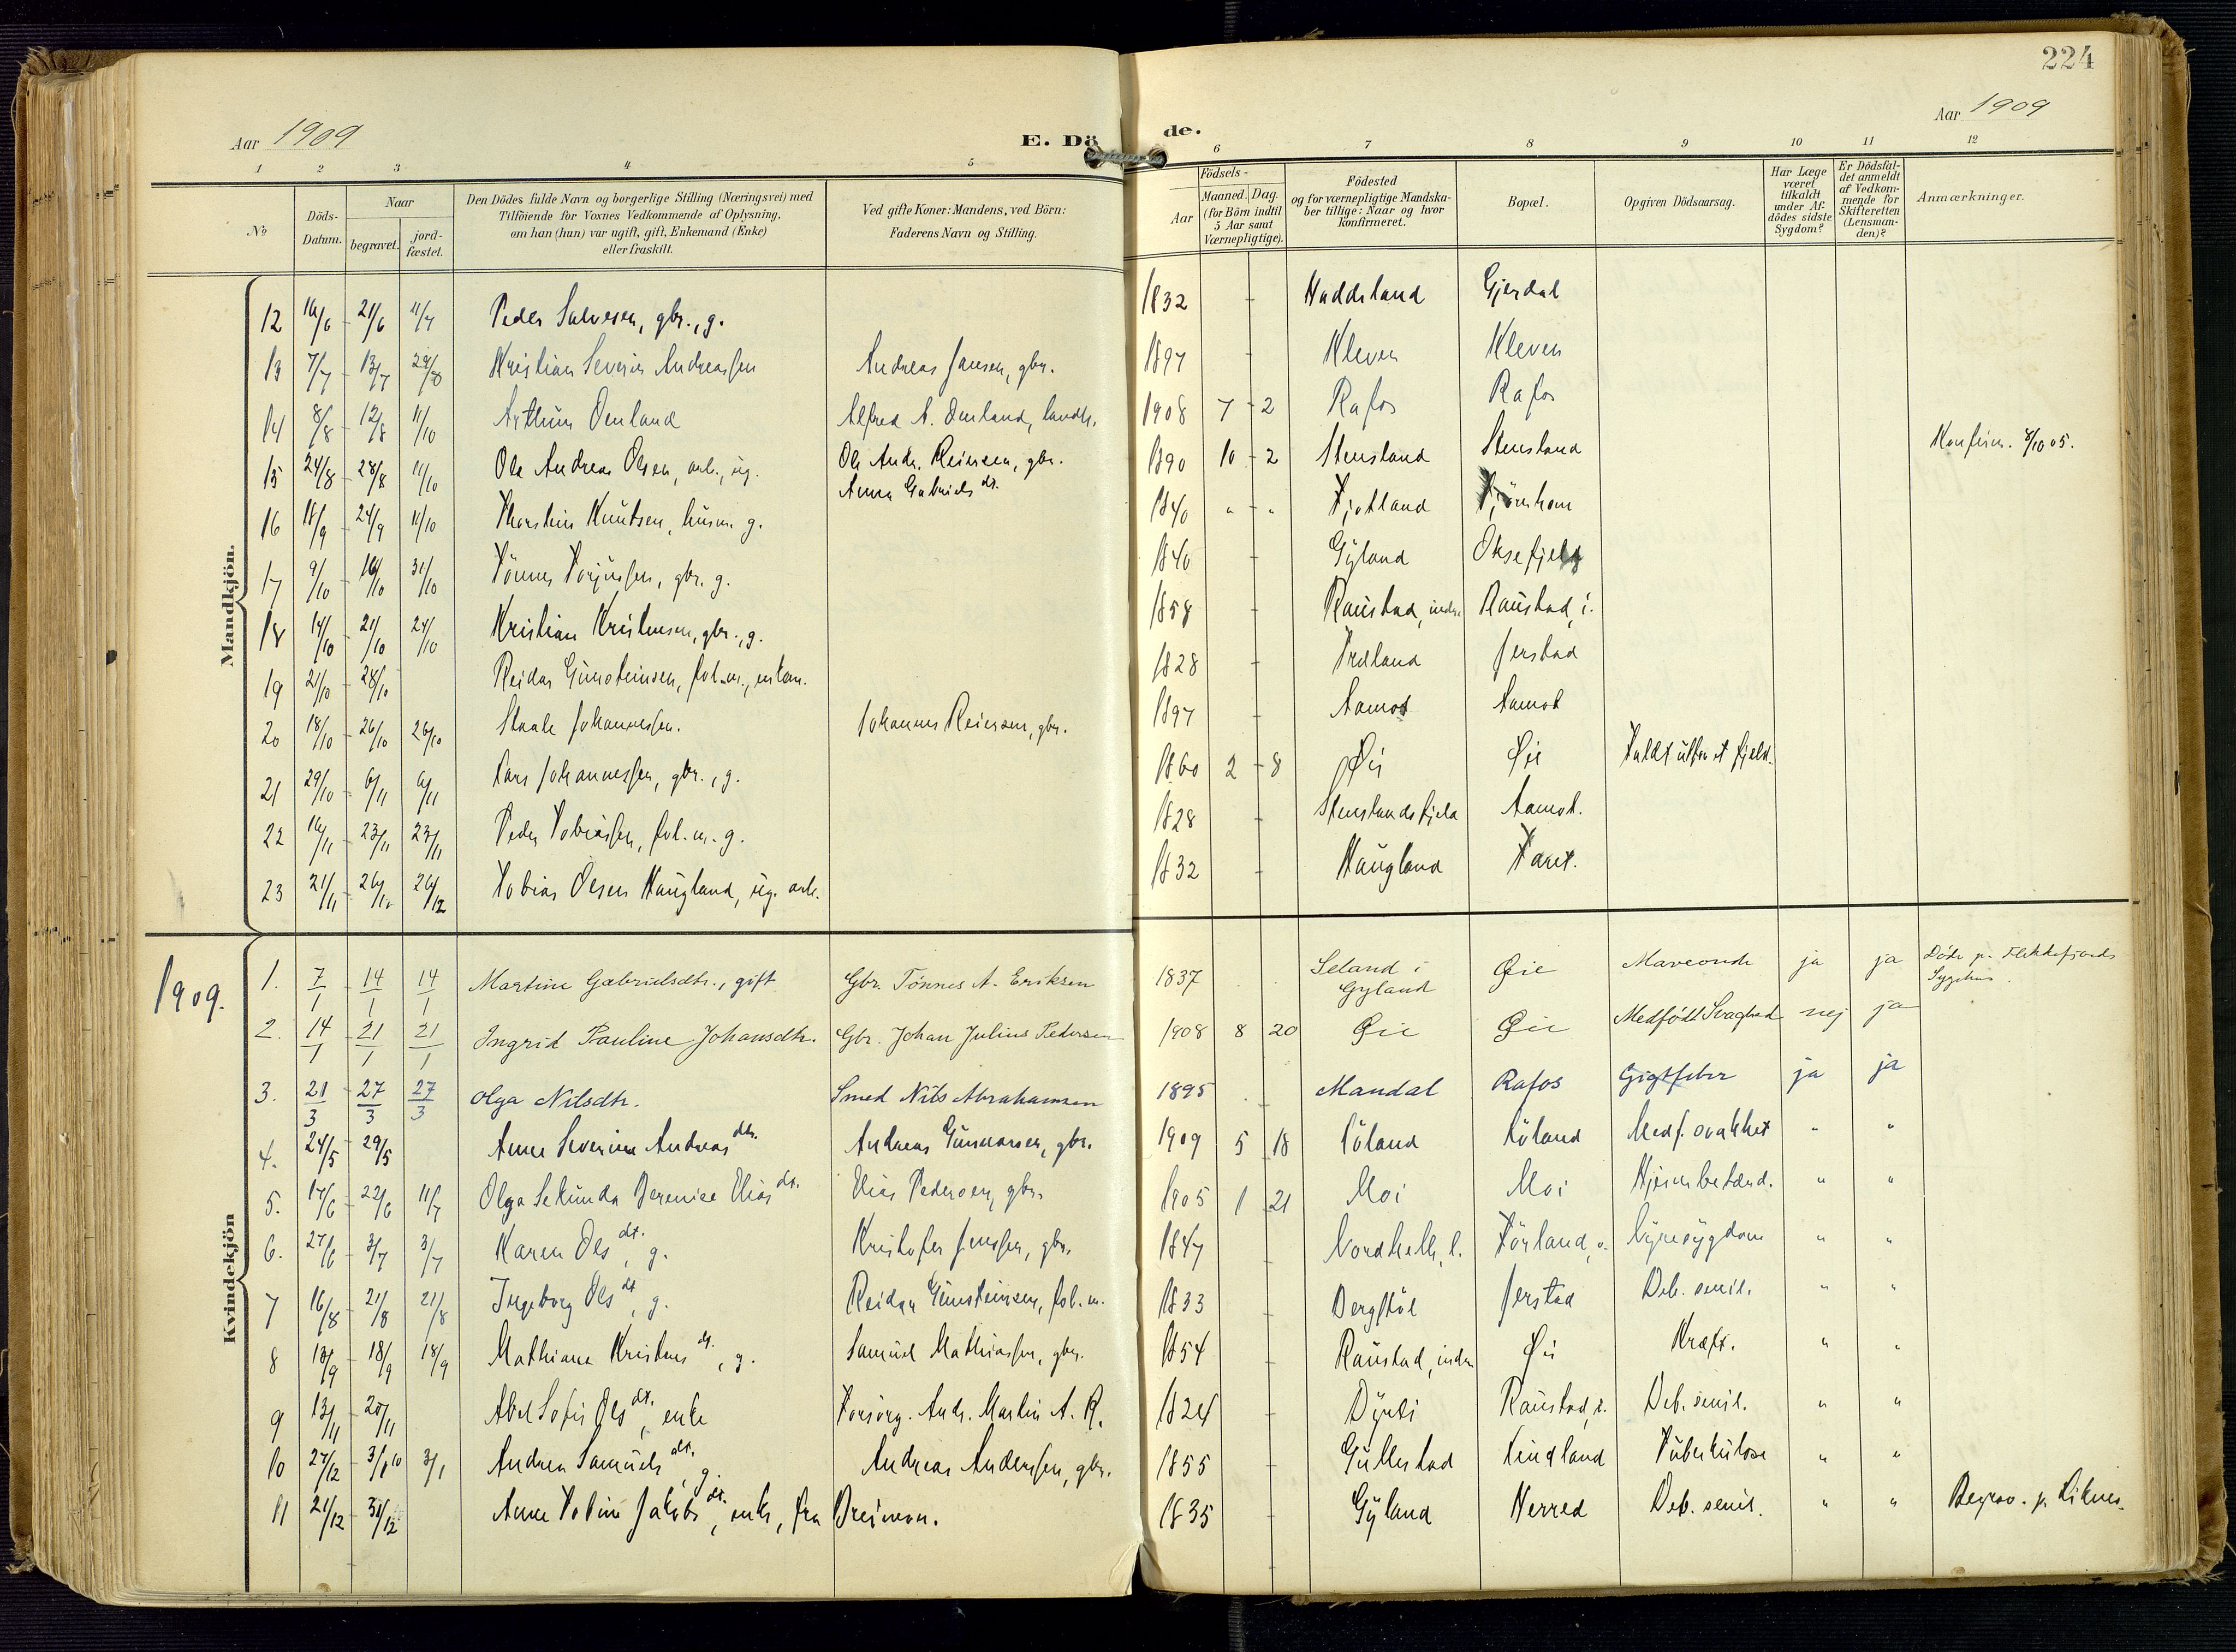 224
Aar 1909
E. Dö de.
Aar 1909
1 2 3 4 5 6 7 8 9 10 11 12
No
Döds-Datum.
Naar
begravet.
jord-fæstet.
Den Dödes fulde Navn og borgerlige Stilling (Næringsvei) med
Tilföiende for Voxnes Vedkommende af Oplysning,
om han (hun) var ugift, gift, Enkemand (Enke)
eller fraskilt.
Ved gifte Koner: Mandens, ved Börn:
Faderens Navn og Stilling.
Födsels-
Aar
Maaned. Dag.
(for Börn indtil
5 Aar samt
Værnepligtige).
Födested
og for værnepligtige Mandska-
ber tillige: Naar og hvor
konfirmeret.
Bopæl.
Opgiven Dödsaarsag.
Har Læge
været
tilkaldt
under Af-
dödes sidste
Sygdom?
Er Dödsfal-
det anmeldt
af Vedkom-
mende for
Skifteretten
(Lensman-
den)?
Anmærkninger.
Mandkjön.
12 16/6 - 21/6 11/7 Peder Salvesen, gbr., g. 1832 - Haddeland Gjerdal
13 7/7 - 13/7 29/8 Kristian Severin Andreassen Andreas Jansen, gbr. 1897 - Kleven Kleven
14 8/8 - 12/8 11/10 Arthur Omland Alfred A. Omland, landh. 1908 7 - 2 Rafos Rafos
15 24/8 - 28/8 11/10 Ole Andreas Olsen, arb., ug. Ole Andr. Reiersen, gbr. 1890 10 - 2 Stensland Stensland Konfirm. 8/10 05.
Anna Gabriels dt.
16 18/9 - 24/9 11/10 Thorstein Knutsen, husm. g. 1840 " - " Fjotland
17 9/10 - 16/10 31/10 Tönnes Torjussen, gbr. g. 1840 - Gyland Oksefjeld
18 14/10 - 21/10 24/10 Kristian Kristensen, gbr., g. 1858 - Raustad, indre Raustad, i.
19 21/10 - 28/10 Reidar Gunsteinsen, fol.m., enkem. 1828 - Fredland Jerstad
20 18/10 - 26/10 26/10 Staale Johannessen. Johannes Reiersen, gbr. 1897 - Aamot Aamot
21 29/10 - 6/11 6/11 Lars Johannessen, gbr., g. 1860 2 - 8 Øie Øie Faldt utfor et fjeld.
22 16/11 - 23/11 23/11 Peder Tobiassen, fol.m. g. 1828 - Stenslandskjela Aamot.
23 21/11 - 26/11 26/12 Tobias Olsen Haugland, ug. arb. 1832 - Haugland
1909.
Kvindekjön
1. 7/1 - 14/1 14/1 Martine Gabrielsdtr., gift Gbr. Tönnes A. Eriksen 1837 Seland i Gyland Øie Maveonde ja ja Döde p. Flekkefjords Sygehus.
2. 14/1 - 21/1 21/1 Ingrid Pauline Johansdtr. Gbr. Johan Julius Pedersen 1908 8 20 Øie Øie Medfödt Svaghed nej ja
3. 21/3 - 27/3 27/3 Olga Nilsdtr. Smed Nils Abrahamsen 1895 - Mandal Rafos Gigtfeber ja ja
4. 24/5 29/5 Anna Severine Andreas dtr. Andreas Gunnarsen, gbr. 1909 5 18 Löland Löland Medf. svakhet " "
5. 17/6 - 22/6 11/7 Olga Sekunda Berenice Elias dt. Elias Pedersen, gbr. 1905 1 21 Moi Moi Hjernebetænd. " "
6. 27/6 3/7 3/7 Karen Ols dt., g. Kristofer Jenssen, gbr. 1847 - Nordhelle, l. Förland, o. Nyresygdom " "
7 16/8 - 21/8 21/8 Ingeborg Ols dt., g. Reidar Gunsteinsen, fol.m. 1833 - Bergstöl Jerstad Deb. senil. " "
8 13/9 - 18/9 18/9 Mathiane Kristens dt., g. Samuel Mathiassen, gbr. 1854 - Raustad, indre Øie Kræft. " "
9 13/11 - 20/11 Abel Sofie Ols dt., enke Forsörg. Andr. Martin A. R. 1824 - Dyrli Raustad, i. Deb. senil. " "
10 27/12 - 3/1 10 3/1 Andrea Samuels dt., g. Andreas Anderssen, gbr. 1855 - Gullestad Lindland Tuberkulose " "
11 21/12 - 31/12 Anne Toline Jakobs dt., enke, fra Breimon. 1835 - Gyland Herred Deb. senil. " " Begrav. p. Liknes.